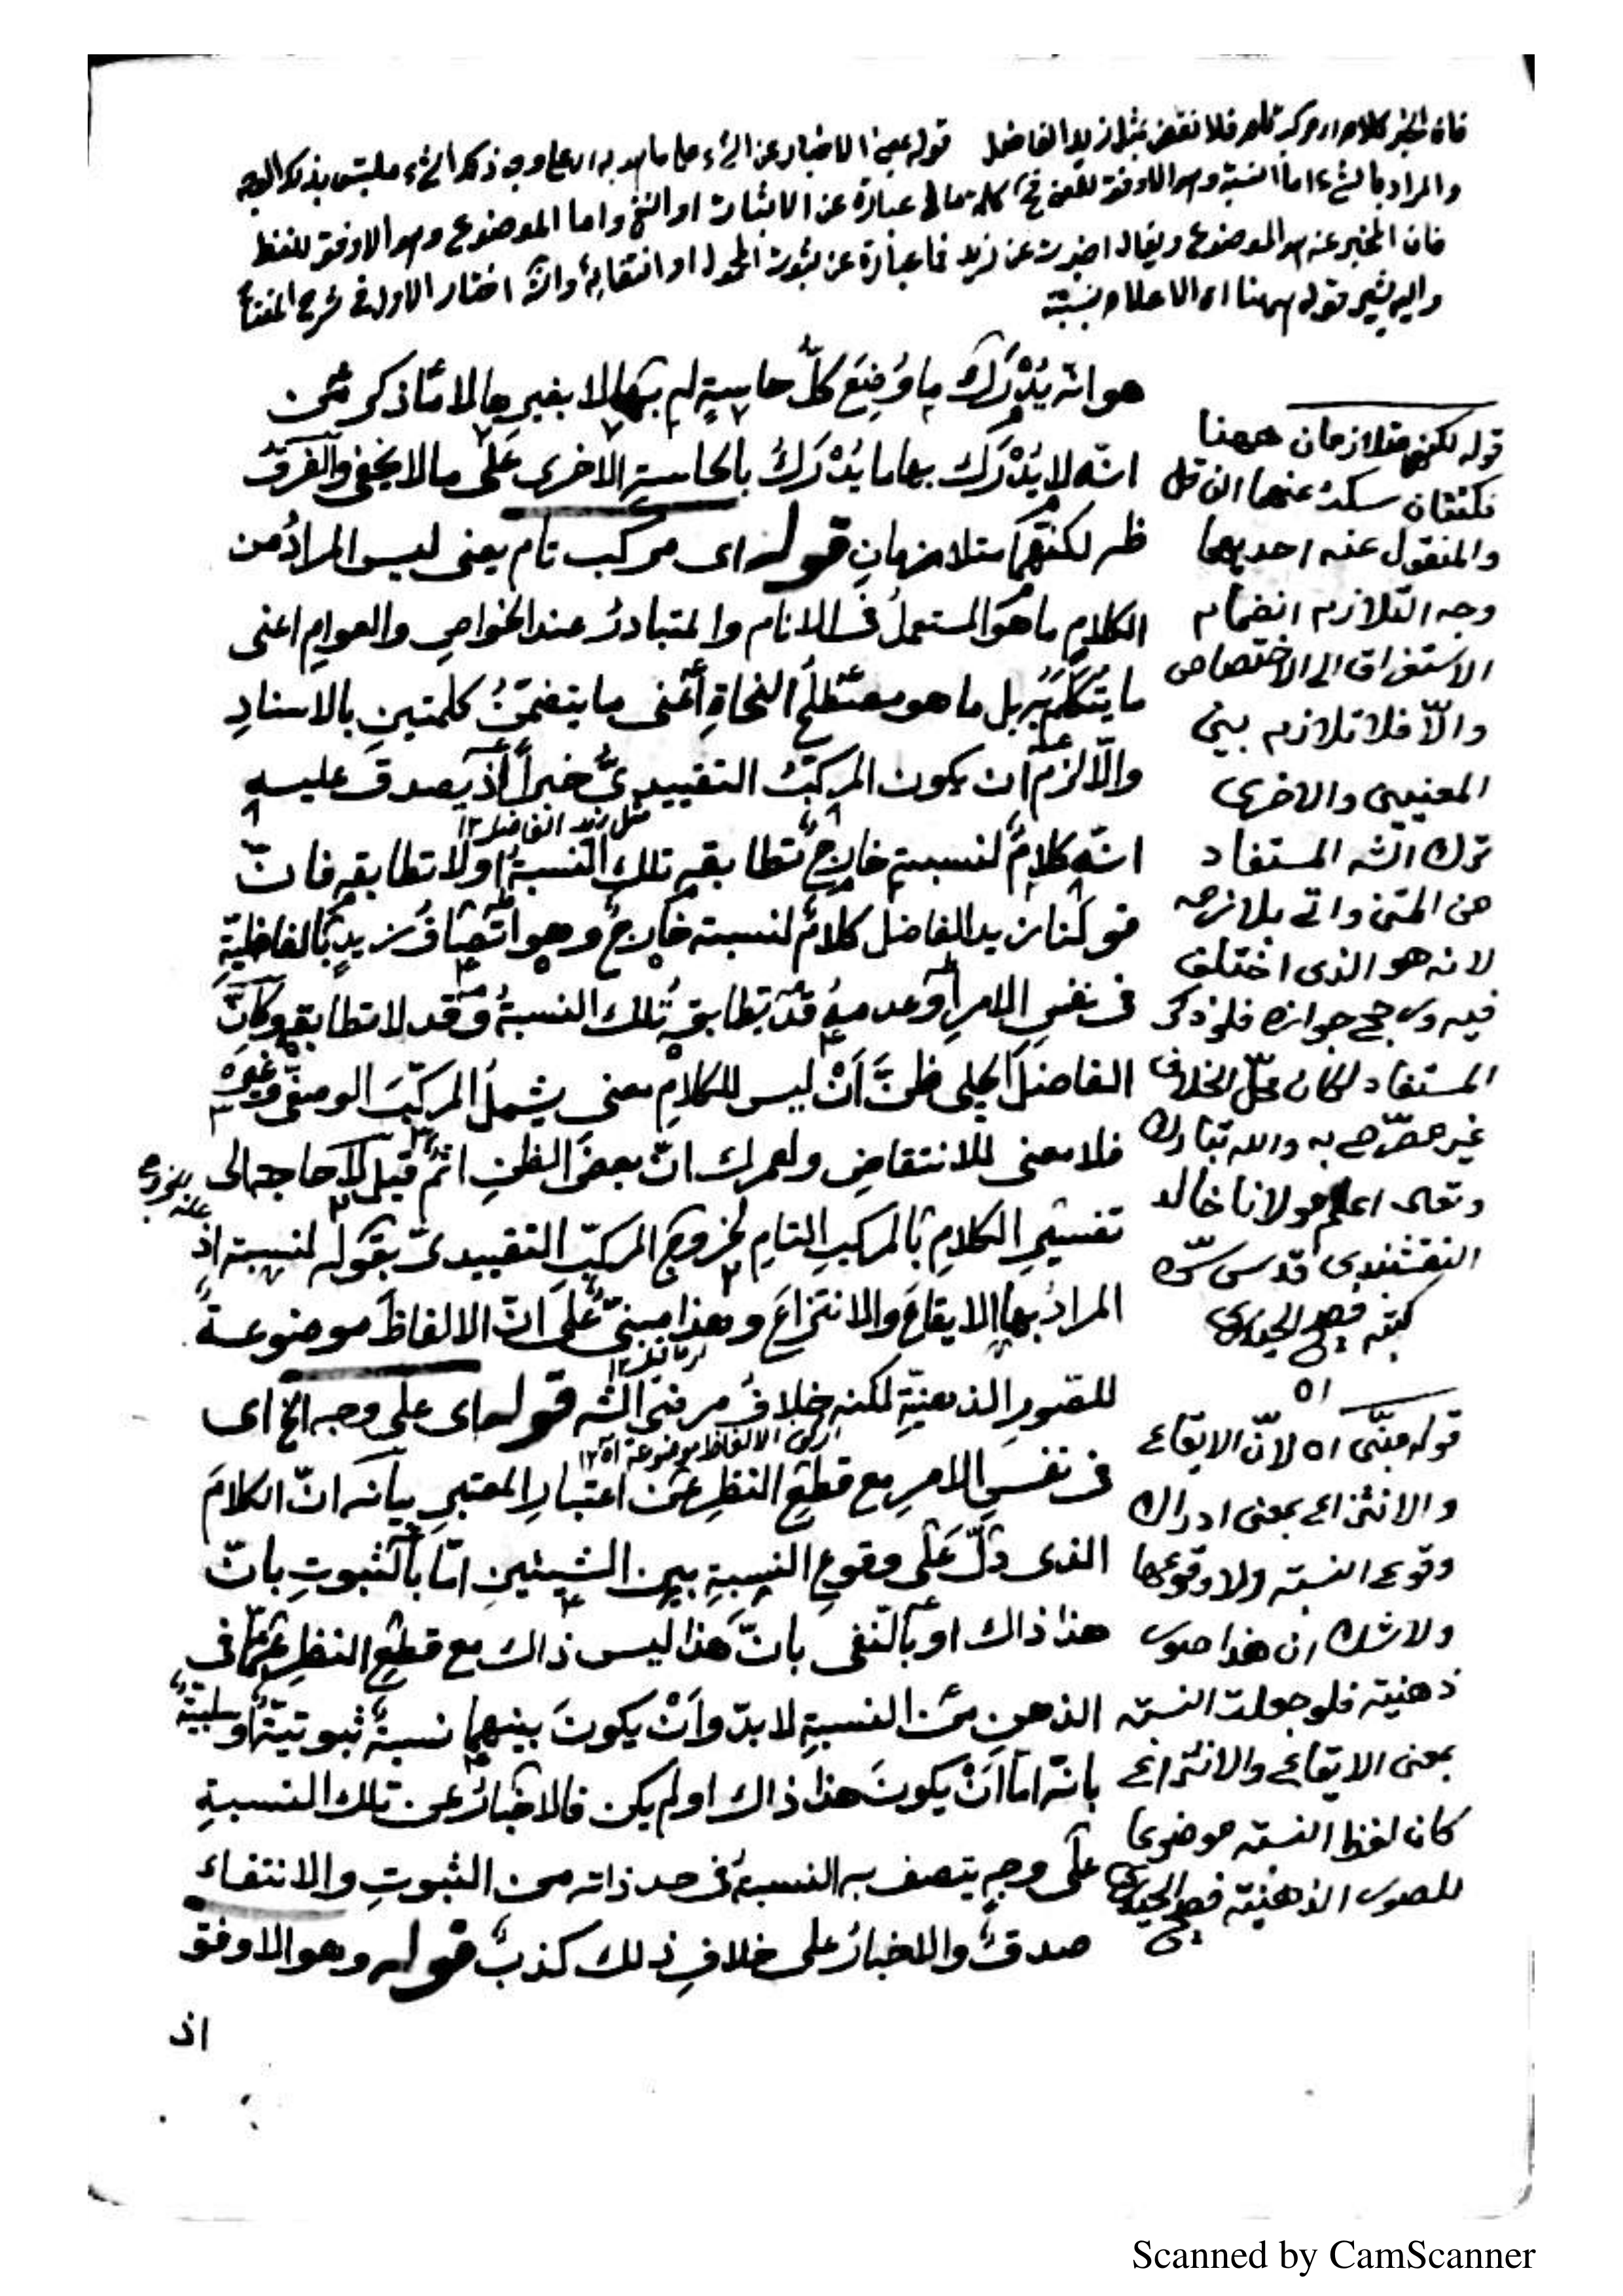 فان الخبر كلام اى مركب تام فلا نقض بمثل زيد الفاضل قوله بمعنى الاخبار عن الشئ على ما هو به اى على وجه ذلك الشئ ملتبس بذلك الوجه
والمراد بالشئ اما النسبة وهو الاوفق للمعنى فح كلمة ما فى عبارة عن الاثبات او النفى واما الموضوع وهو الاوفق للفظ
فان المخبر عنه هو الموضوع ويقال اخبرت عن زيد فما عبارة عن ثبوت المحمول او انتفائه والشه اختار الاول فى شرح
واليه يشير قوله ههنا اى الاعلام بنسبة
هو انه يُدْرَكَ ما وُضِعَ كلُّ حاسةٍ له بها لا بغيرها لا ما ذكر من
انّه لا يُدْرَك بها ما يُدْرَكُ بالحاسةِ الاخرى عَلَى مالا يخفى والفرقُ
ظـ لكنهما متلازمانِ قوله اى مركب تام يعنى ليس المرادُ من
الكلامِ ما هو المستعملُ فى الانام والمتبادرُ عند الخواصِ والعوامِ اعنى
ما يُتَكَلَّم به بل ما هو مصطلحُ النحاةِ أعنى ما يتضمّنُ كلمتينِ بالاسنادِ
والّا لزم ان يكون المركبُ التقييدىُّ خبراً اذ يصدقُ عليه
مثل زيد الفاضل ١٢
انّه كلامٌ لنسبته خارجٌ تطابقه تلك النسبةُ او لا تطابقه فانّ
قولَنا زيد الفاضل كلامٌ لنسبته خارجٌ وهو اتّصافُ زيدٍ بالفاضليّةِ
فى نفسِ الامرِ او عدمه قد تطابقه تلك النسبةُ وقد لا تطابقه وكانّ
الفاضلَ الچلپى ظنَّ اَنْ ليس للكلامِ معنى يشملُ المركّبَ الوصفىَّ وغيره
فلا معنى للانتقاضِ ولعمرك انّ بعضَ الظنِ اثم قيل لا حاجة الى
تفسيرِ الكلامِ بالمركبِ التامِ لخروجِ المركّبِ التقييدىّ بقوله لنسبته اذ
المرادُ بها الايقاعَ والانتزاعَ وهذا مبنىٌّ عَلَى انّ الالفاظَ موضوعةٌ
للصورِ الذهنيّةِ لكنه خلافُ مرضى الشه قوله اى على وجه الخ اى
فى نفسِ الامرِ مع قطعِ النظرِ عن اعتبارِ المعتبرِ بيانه انّ الكلامَ
الذى دلَّ عَلَى وقوعِ النسبةِ بين الشيئينِ امّا بالثبوتِ بانّ
هذا ذاك او بالنّفى بانّ هذا ليس ذاك مع قطعِ النظرِ عمّا فى
الذهنِ من النسبةِ لابدّ واَنْ يكونَ بينهما نسبةٌ ثبوتيّةٌ او سلبيّةٌ
بانّه اما اَنْ يكونَ هذا ذاك او لم يكن فالاخبارُ عن تلك النسبةِ
على وجهٍ يتصف به النسبةُ فى حد ذاته من الثبوتِ والانتفاء
صدقٌ والاخبارُ على خلافِ ذلك كذبٌ قوله وهو الاوفق
اذ
قوله لكنهما متلازمان ههنا
نكتتان سكت عنهما ان قل
والمنقول عنه احديهما
وجه التلازم انضمام
الاستغراق الى الاختصاص
والّا فلا تلازم بين
المعنيين والاخرى
ترك الشه المستفاد
من المتن واتى بلازمه
لانه هو الذى اختلف
فيه ورجح جوازه فلو ذكر
المستفاد لكان محلّ الخلاف
غير مصرّح به والله تبارك
وتعالى اعلم مولانا خالد
النقشبندى قدس سرّه
كتبه الحيدرى
قوله مبنّى اه لانّ الايقاع
والانتزاع بمعنى ادراك
وقوع النسبة ولا وقوعها
ولا شك ان هذا صور
ذهنية فلو جعلت النسبة
بمعنى الايقاع والانتزاع
كان لفظ النسبة موضوعا
للصور الذهنية الحيدرى
Scanned by CamScanner